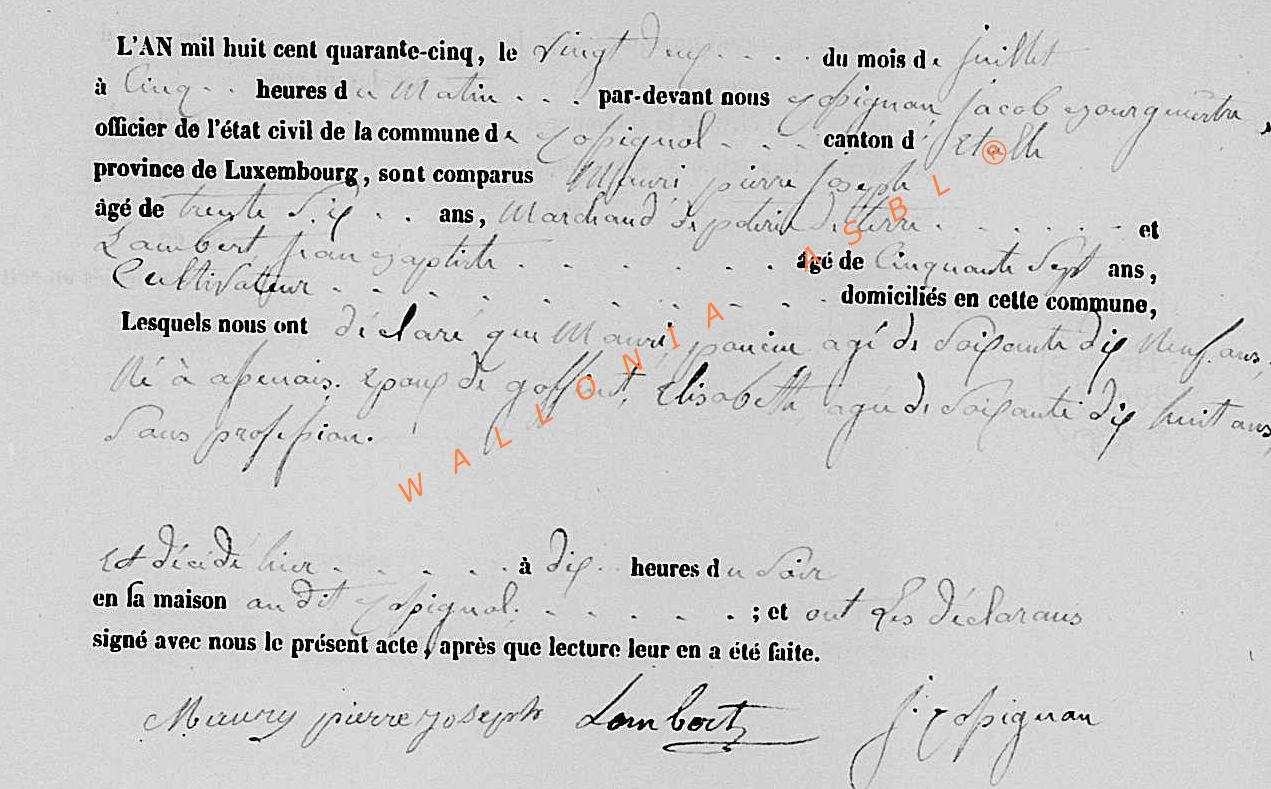 L'AN mil huit cent quarante-cinq, le Vingt deux du mois de juillet
à Cinq heures du Matin par-devant nous jacob Bourguemêtre,
officier de l'état civil de la commune de canton d'Etalle
province de Luxembourg, sont comparus Mauri pierre joseph
âgé de trente Six ans, Marchand de poterie de terre et
Lambert jean Baptiste âgé de Cinquante Sept ans,
Cultivateur domiciliés en cette commune,
Lesquels nous ont déclaré que Mauri, agé de Soixante dix Neuf ans,
Né à Epoux de Elisabeth agée de Soixante dix huit ans,
Sans profession.
Est décédé hier à dix heures du Soir
en sa maison au dit ; et ont les déclarans
signé avec nous le présent acte, après que lecture leur en a été faite.
Maury pierre joseph Lambert J.
WALLONIA ASBL ®